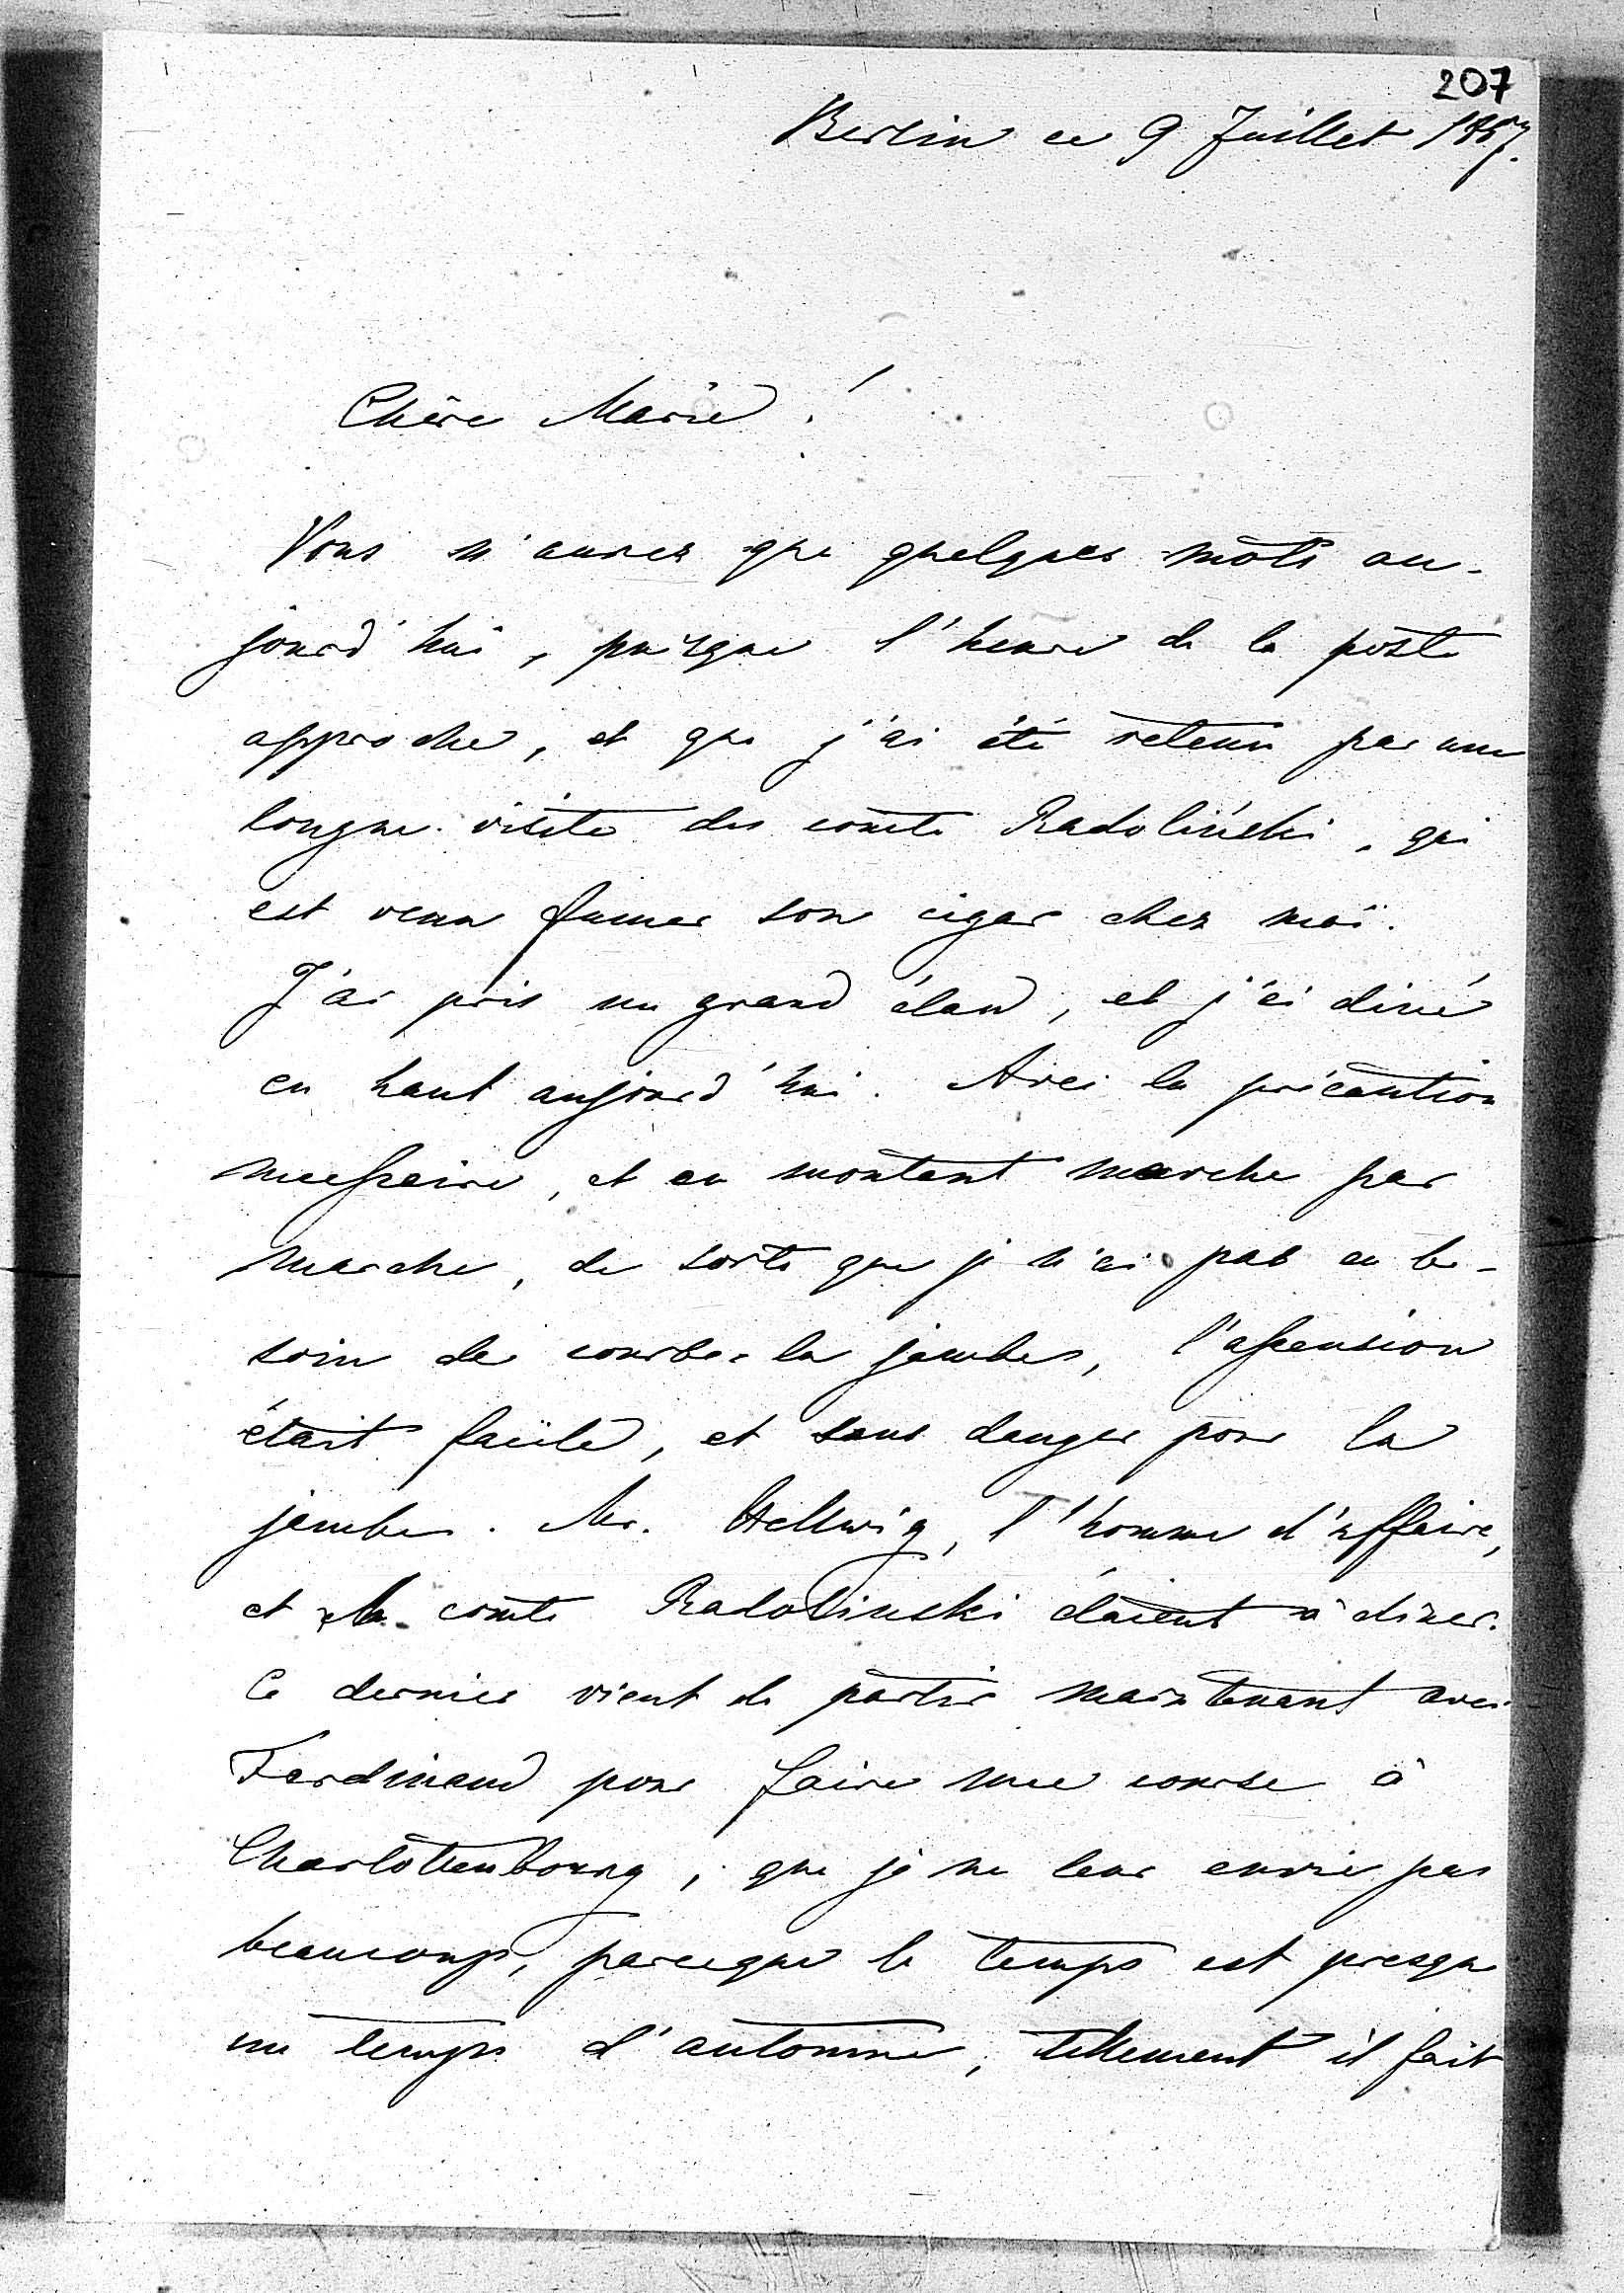 207
Berlin ce 9 Juillet 1857.
Chère Marie!
Vous n'aurez que quelques mots au-
jourd'hui, puisque l'heure de la poste
approche, et que j'ai été retenu par une
longue visite du comte Radoliński, qui
est venu fumer son cigar chez moi.
J'ai pris un grand élan, et j'ai diné
en haut aujourd'hui. Avec la précaution
necessaire, et en montant marche par
marche, de sorte que je n'ai pas eu be-
soin de courber la jambe, l'assension
était facile, et sans danger pour la
jambe. Mr. Hellwig, l'homme d'affaire,
et le comte Radolinski étaient à diner.
Ce dernier vient de partir maintenant avec
Ferdinand pour faire une course à
Charlottenbourg, que je ne leur envie pas
beaucoup, parceque le temps est presque
un temps d'automne, tellement il fait